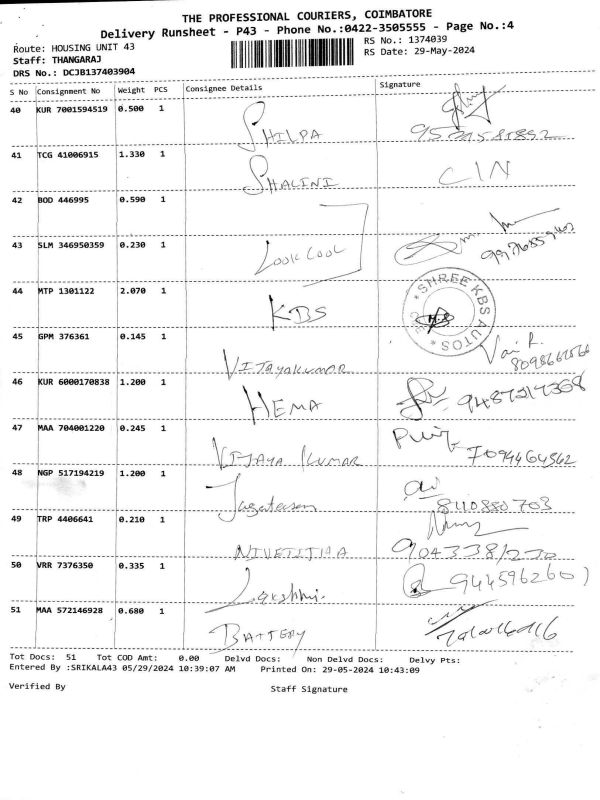 THE PROFESSIONAL COURIERS, COIMBATORE
Delivery Runsheet - P43 - Phone No.:0422-3505555 - Page No.:4
Route: HOUSING UNIT 43
RS No.: 1374039
Staff: THANGARAJ
RS Date: 29-May-2024
DRS No.: DCJB137403904
S No Consignment No Weight PCS Consignee Details Signature
40 KUR 7001594519 0.500 1 SHILPA
41 TCG 41006915 1.330 1 SHALINI CIN
42 BOD 446995 0.590 1
43 SLM 346950359 0.230 1 Look Cool
44 MTP 1301122 2.070 1 KBS
*SHREE KBS AUTOS*
45 GPM 376361 0.145 1 VIJAYAKUMAR
46 KUR 6000170838 1.200 1 HEMA 9487217368
47 MAA 704001220 0.245 1 VIJAYA KUMAR 7094464562
48 NGP 517194219 1.200 1 8110880703
49 TRP 4406641 0.210 1
50 VRR 7376350 0.335 1 Lakshmi. 9445962601
51 MAA 572146928 0.680 1 BATTERY
Tot Docs: 51 Tot COD Amt: 0.00 Delvd Docs: Non Delvd Docs: Delvy Pts:
Entered By :SRIKALA43 05/29/2024 10:39:07 AM Printed On: 29-05-2024 10:43:09
Verified By Staff Signature